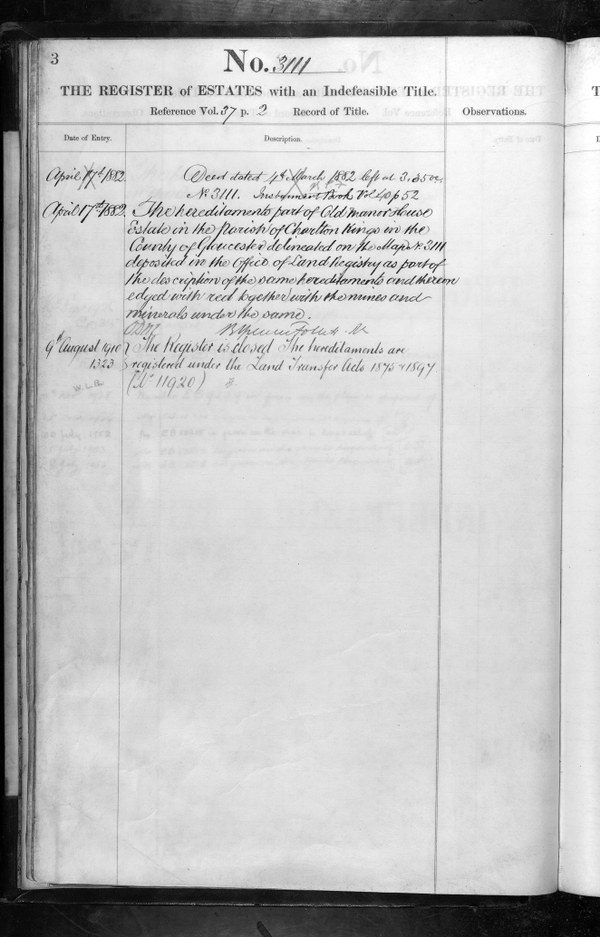 3
No. 3111
THE REGISTER of ESTATES with an Indefeasible Title.
Reference Vol. 37 p. 2 Record of Title.
Observations.
Date of Entry.
Description.
April 17th 1882.
Deed dated 4th March 1882 left at 3.35
No 3111. Instrument Book Vol 40 p 52
April 17th 1882.
The hereditaments part of Old Manor House
Estate in the Parish of Charlton Kings in the
County of Gloucester delineated on the Map No 3111
deposited in the Office of Land Registry as part of
the description of the same hereditaments and thereon
edged with red together with the mines and
minerals under the same.
9th August 1910
1323
The Register is closed The hereditaments are
registered under the Land Transfer Acts 1875 & 1897
(No 11920)